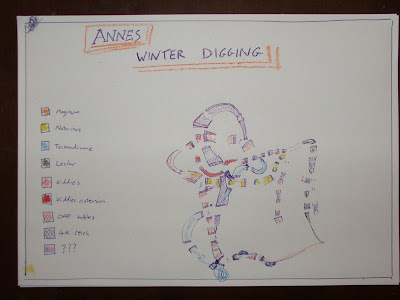 ANNES
WINTER DIGGING
Magnum
Notorious
Technodrome
Kiddies
Kiddies extension
OAP tables
4X sexy
???